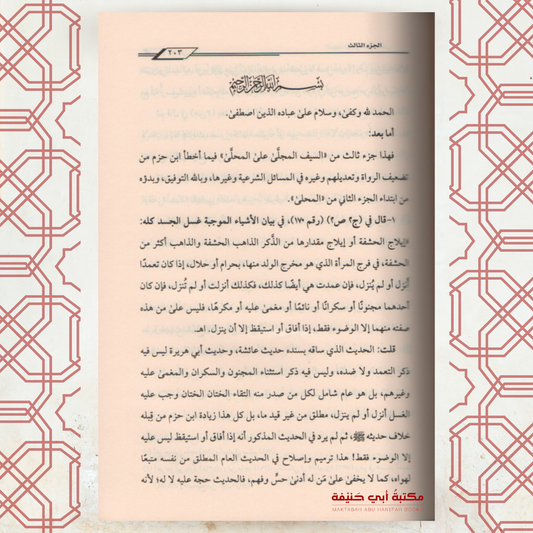 الجزء الثالث
٢٠٣
بسم الله الرحمن الرحيم
الحمد لله وكفىٰ، وسلام علىٰ عباده الذين اصطفىٰ.
أما بعد:
فهذا جزء ثالث من «السيف المجلَّىٰ علىٰ المحلَّىٰ» فيما أخطأ ابن حزم من
تضعيف الرواة وتعديلهم وغيره في المسائل الشرعية وغيرها، وبالله التوفيق، وبدؤه
من ابتداء الجزء الثاني من «المحلىٰ».
١-قال في (ج٢ ص٢) (رقم ١٧٠)، في بيان الأشياء الموجبة غسل الجسد كله:
«إيلاج الحشفة أو إيلاج مقدارها من الذَّكر الذاهب الحشفة والذاهب أكثر من
الحشفة، في فرج المرأة الذي هو مخرج الولد منها، بحرام أو حلال، إذا كان تعمدًا
أنزل أو لم يُنزل، فإن عمدت هي أيضًا كذلك، فكذلك أنزلت أو لم تُنزل، فإن كان
أحدهما مجنونًا أو سكرانًا أو نائمًا أو مغمىٰ عليه أو مكرهًا، فليس علىٰ من هذه
صفته منهما إلا الوضوء فقط، إذا أفاق أو استيقظ إلا أن ينزل. اهـ
قلت: الحديث الذي ساقه بسنده حديث عائشة، وحديث أبي هريرة ليس فيه
ذكر التعمد ولا ضده، وليس فيه ذكر استثناء المجنون والسكران والمغمىٰ عليه
وغيرهم، بل هو عام شامل لكل من صدر منه التقاء الختان الختان وجب عليه
الغسل أنزل أو لم ينزل، مطلق من غير قيد ما، بل كل هذا زيادة ابن حزم من قِبله
خلاف حديثه ﷺ، ثم لم يرد في الحديث المذكور أنه إذا أفاق أو استيقظ ليس عليه
إلا الوضوء فقط! هذا ترميم وإصلاح في الحديث العام المطلق من نفسه متبعًا
لهواه، كما لا يخفىٰ علىٰ مَن له أدنىٰ حسٍّ وفهم، فالحديث حجة عليه لا له؛ لأنه
مكتبة أبي حنيفة
MAKTABAH ABU HANIFAH